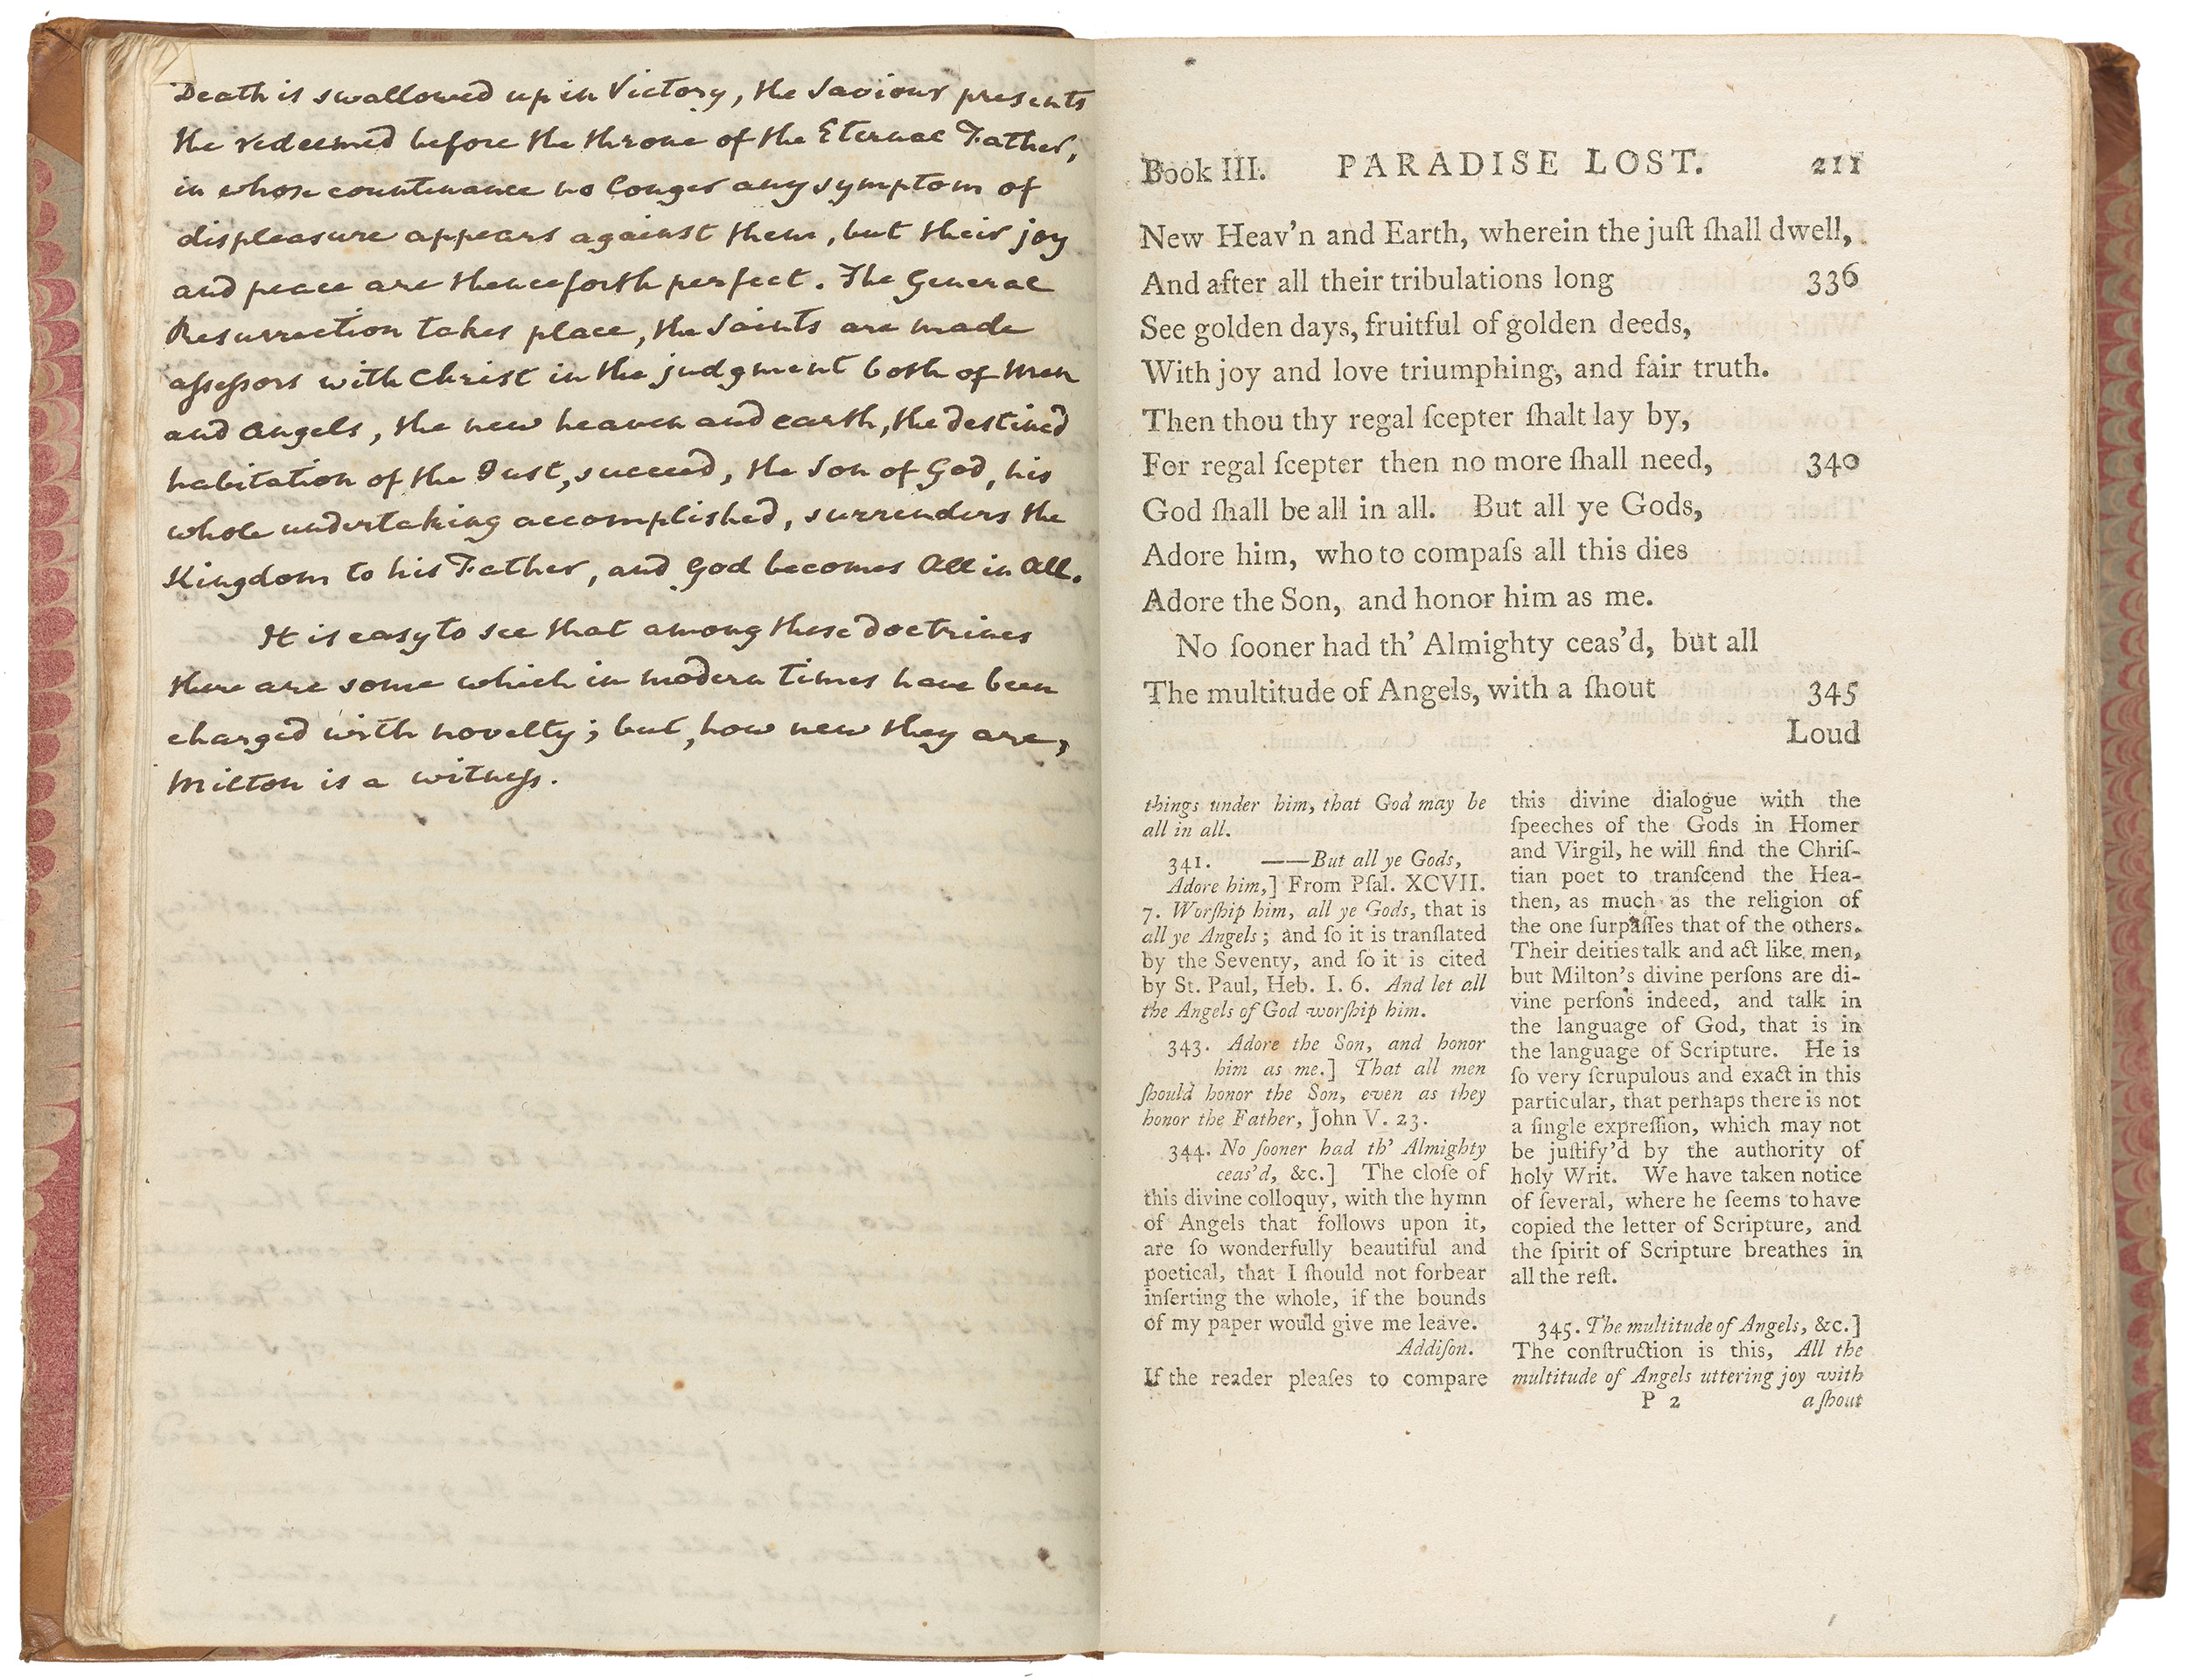 Death is swallowed up in Victory, the Saviour presents
the redeemed before the throne of the Eternal Father,
in whose countenance no longer any symptom of
displeasure appears against them, but their joy
and peace are thenceforth perfect. The General
Resurrection takes place, the Saints are made
aſseſsors with Christ in the judgment both of Men
and Angels, the new heaven and earth, the destined
habitation of the Just, succeed, the Son of God, his
whole undertaking accomplished, surrenders the
Kingdom to his Father, and God becomes All in All.
It is easy to see that among these doctrines
there are some which in modern times have been
charged with novelty; but, how new they are,
Milton is a witneſs.
Book III. PARADISE LOST. 211
New Heav'n and Earth, wherein the juſt ſhall dwell,
And after all their tribulations long 336
See golden days, fruitful of golden deeds,
With joy and love triumphing, and fair truth.
Then thou thy regal ſcepter ſhalt lay by,
For regal ſcepter then no more ſhall need, 340
God ſhall be all in all. But all ye Gods,
Adore him, who to compaſs all this dies
Adore the Son, and honor him as me.
No ſooner had th' Almighty ceas'd, but all
The multitude of Angels, with a ſhout 345
Loud
things under him, that God may be
all in all.
341. ——But all ye Gods,
Adore him,] From Pſal. XCVII.
7. Worſhip him, all ye Gods, that is
all ye Angels; and ſo it is tranſlated
by the Seventy, and ſo it is cited
by St. Paul, Heb. I. 6. And let all
the Angels of God worſhip him.
343. Adore the Son, and honor
him as me.] That all men
ſhould honor the Son, even as they
honor the Father, John V. 23.
344. No ſooner had th' Almighty
ceas'd, &c.] The cloſe of
this divine colloquy, with the hymn
of Angels that follows upon it,
are ſo wonderfully beautiful and
poetical, that I ſhould not forbear
inſerting the whole, if the bounds
of my paper would give me leave.
Addiſon.
If the reader pleaſes to compare
this divine dialogue with the
ſpeeches of the Gods in Homer
and Virgil, he will find the Chriſ-
tian poet to tranſcend the Hea-
then, as much as the religion of
the one ſurpaſſes that of the others.
Their deities talk and act like men,
but Milton's divine perſons are di-
vine perſons indeed, and talk in
the language of God, that is in
the language of Scripture. He is
ſo very ſcrupulous and exact in this
particular, that perhaps there is not
a ſingle expreſſion, which may not
be juſtify'd by the authority of
holy Writ. We have taken notice
of ſeveral, where he ſeems to have
copied the letter of Scripture, and
the ſpirit of Scripture breathes in
all the reſt.
345. The multitude of Angels, &c.]
The conſtruction is this, All the
multitude of Angels uttering joy with
P 2 a ſhout